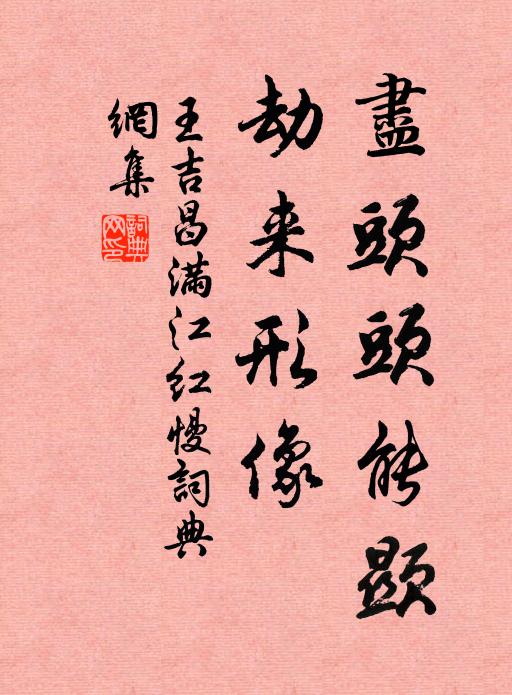 盡頭頭能顯
劫来形像
王吉昌滿江红慢詞典
網集
詞典
网印